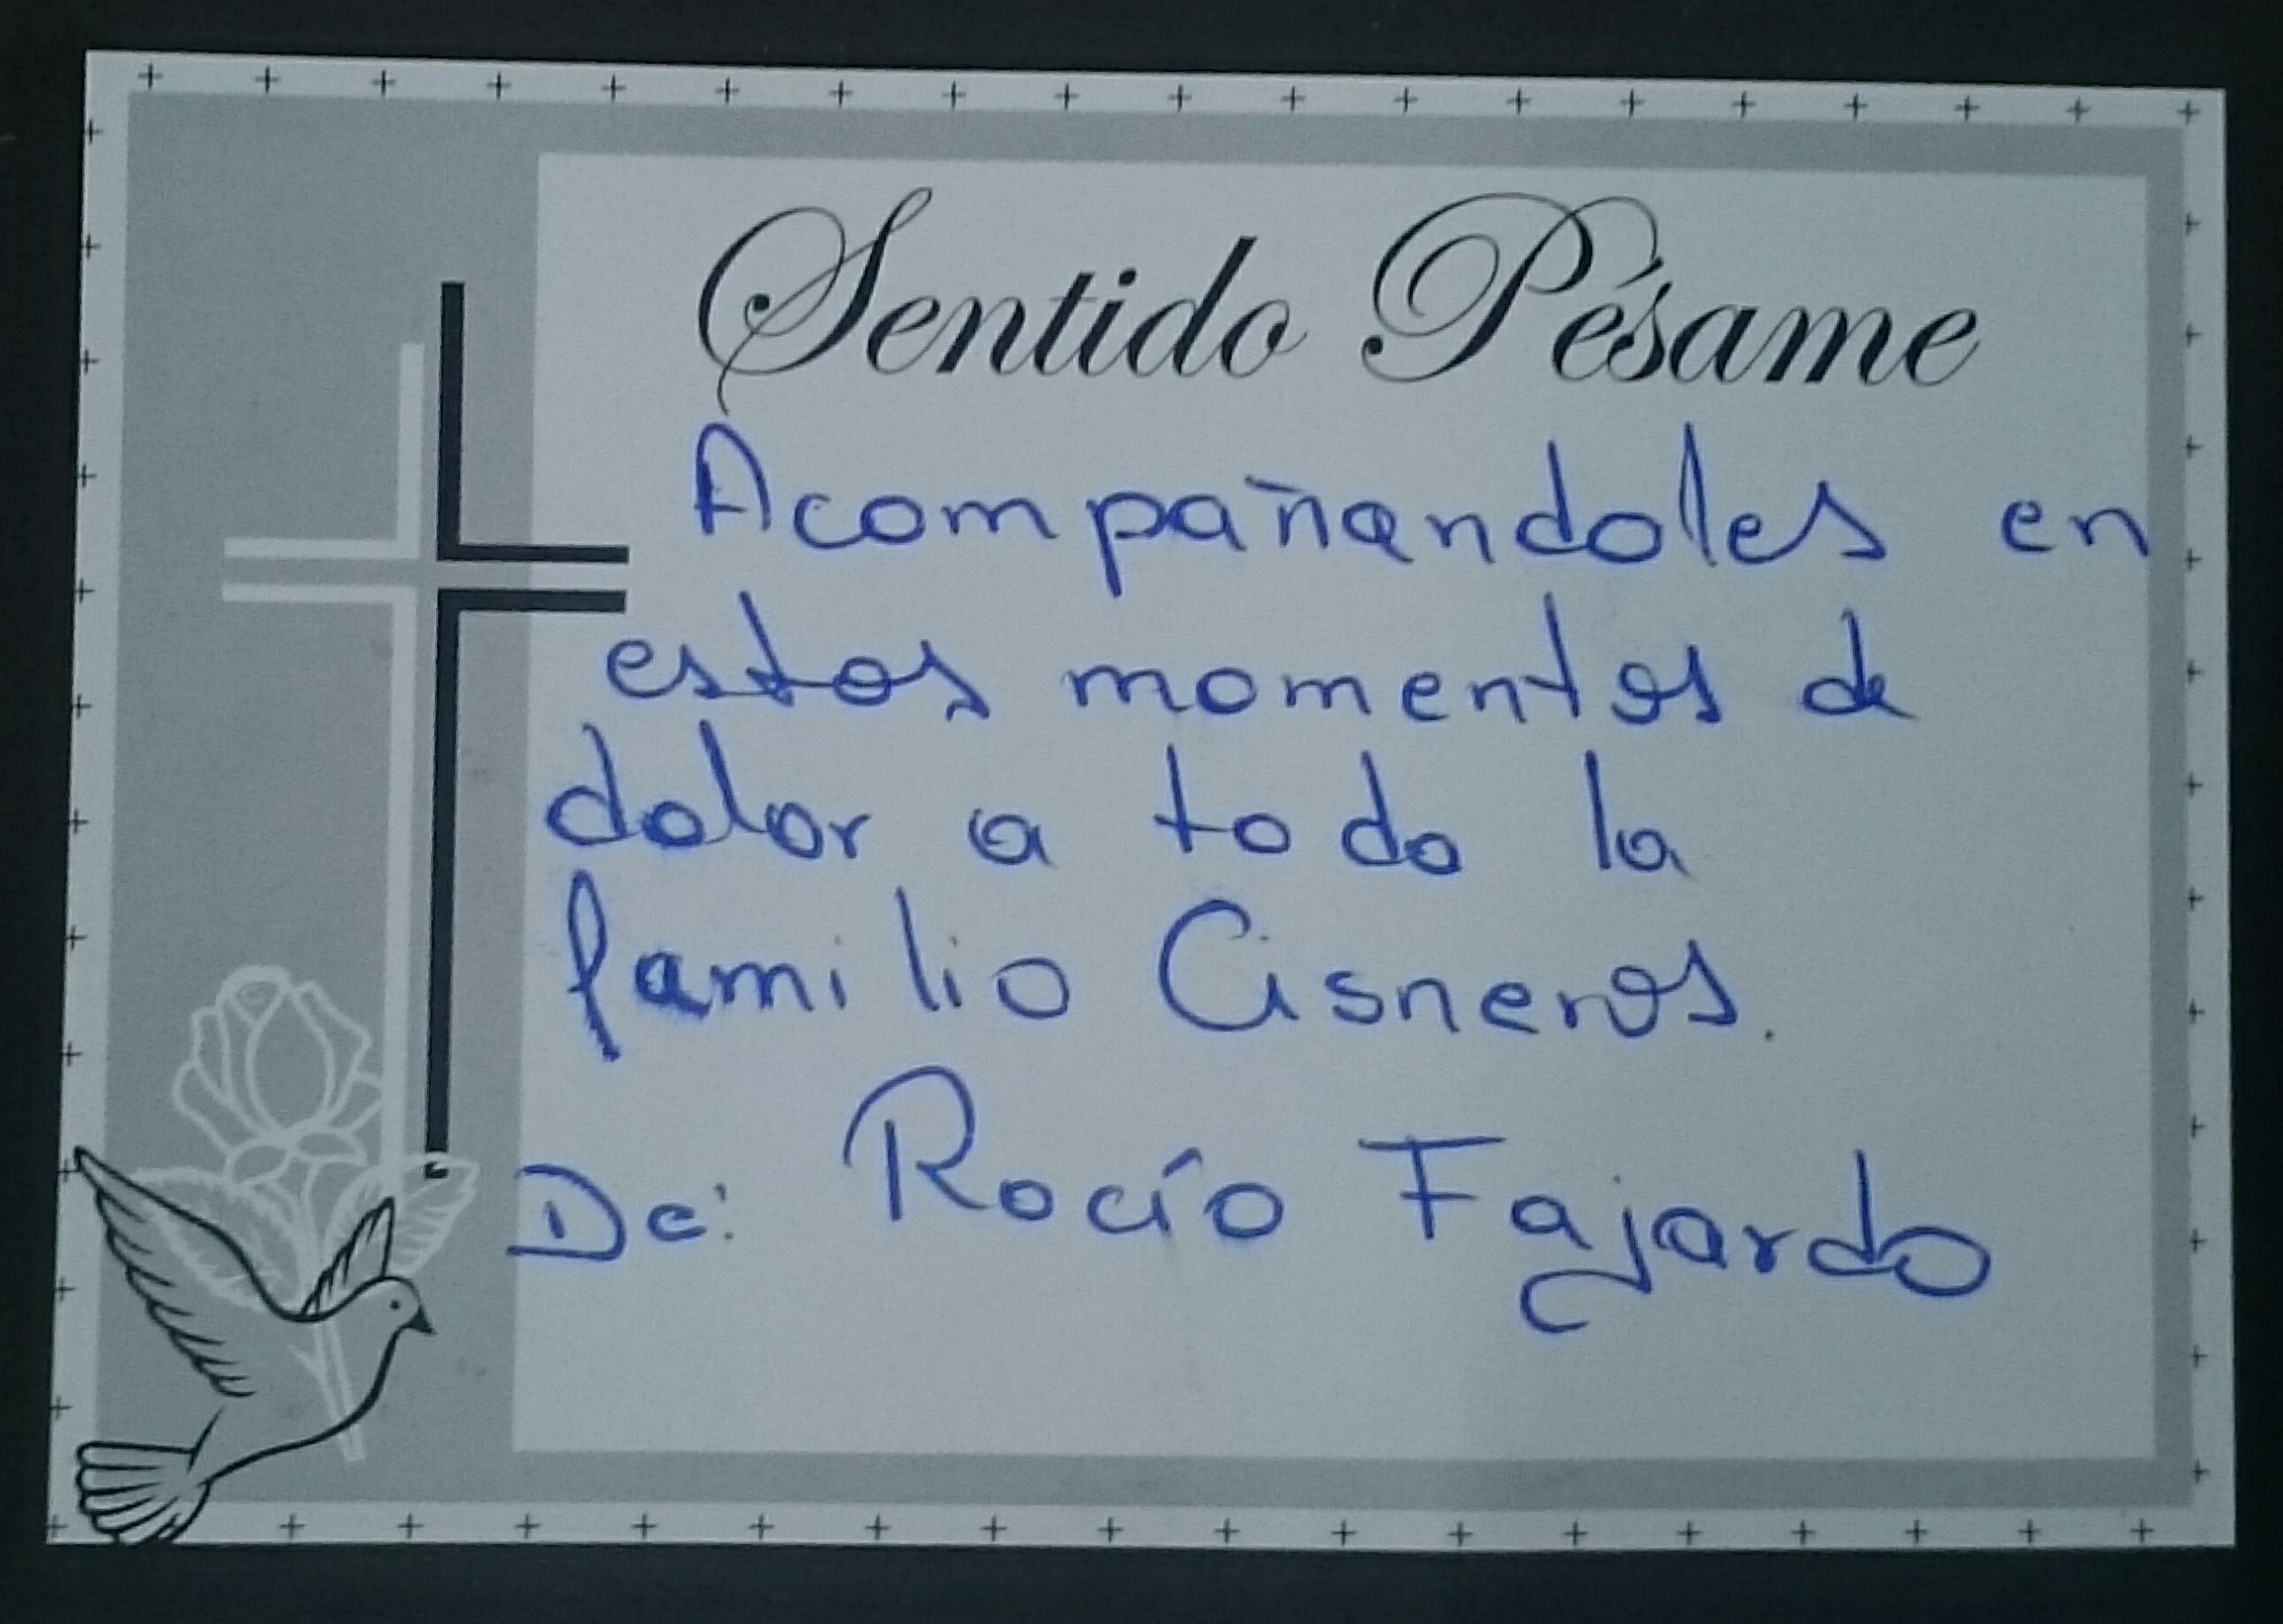 Sentido Pésame
Acompañandoles en
estos momentos de
dolor a todo la
familio Cisneros.
De: Rocío Fajardo